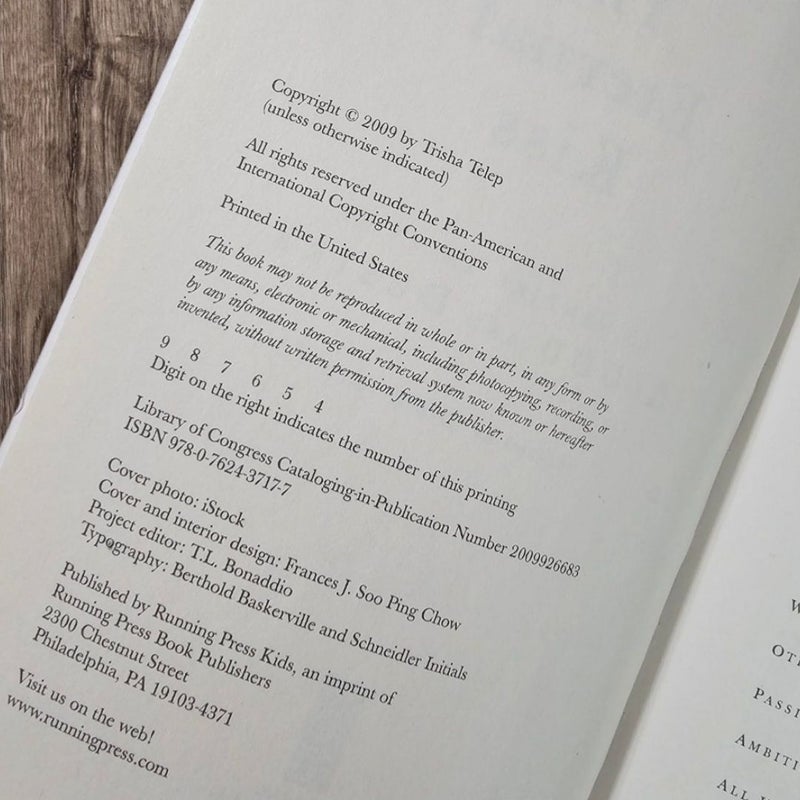 Copyright © 2009 by Trisha Telep
(unless otherwise indicated)
All rights reserved under the Pan-American and
International Copyright Conventions
Printed in the United States
This book may not be reproduced in whole or in part, in any form or by
any means, electronic or mechanical, including photocopying, recording, or
by any information storage and retrieval system now known or hereafter
invented, without written permission from the publisher.
9 8 7 6 5 4
Digit on the right indicates the number of this printing
Library of Congress Cataloging-in-Publication Number 2009926683
ISBN 978-0-7624-3717-7
Cover photo: iStock
Cover and interior design: Frances J. Soo Ping Chow
Project editor: T.L. Bonaddio
Typography: Berthold Baskerville and Schneidler Initials
Published by Running Press Kids, an imprint of
Running Press Book Publishers
2300 Chestnut Street
Philadelphia, PA 19103-4371
Visit us on the web!
www.runningpress.com
ALL